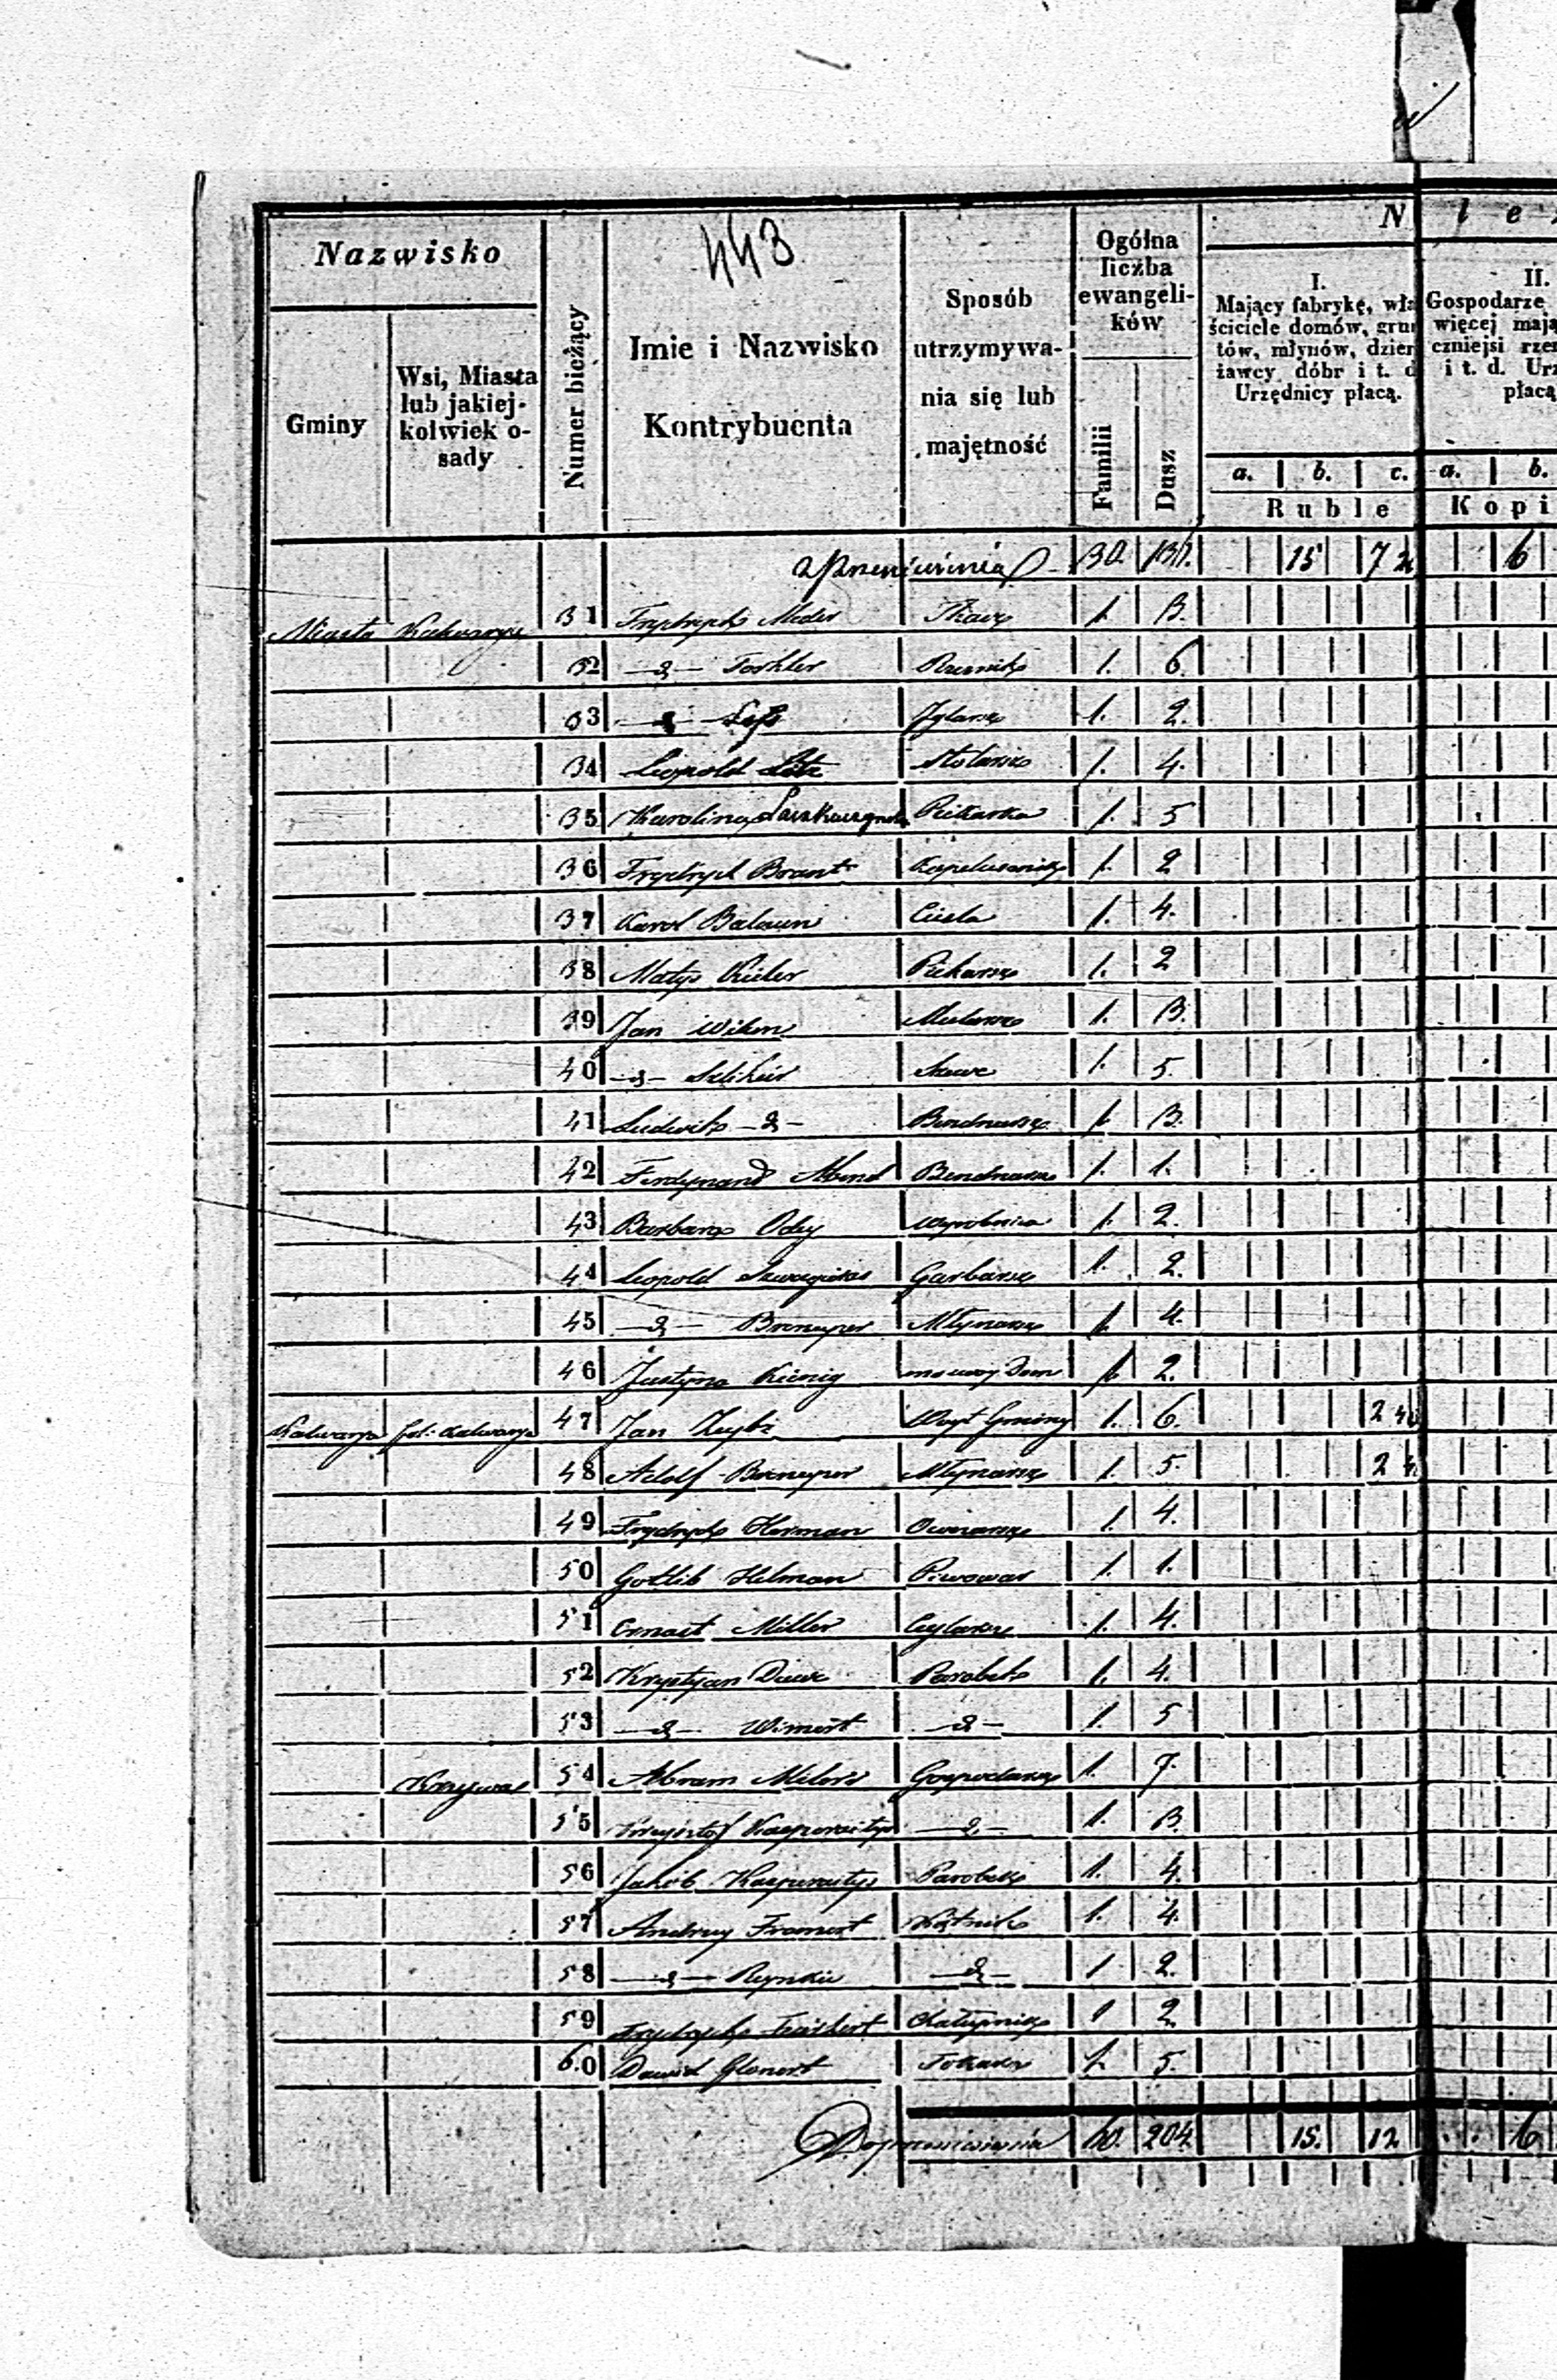 443
Nazwisko
Gminy
Wsi, Miasta lub jakiej-kolwiek o-sady
Numer bieżący
Imie i Nazwisko Kontrybuenta
Sposób utrzymywa-nia się lub majętność
Ogólna liczba ewangeli-ków
Familii
Dusz
N l e
I.
Mający fabrykę, wła
ściciele domów, grun
tów, młynów, dzier
żawcy dóbr i t. d
Urzędnicy płacą.
II.
Gospodarze
więcej mają
czniejsi rze
i t. d. Urz
płacą
a. b. c. a. b.
Ruble Kopi
z Przeniesienia 30. 131. 15 72 6
Miasto Kalwarya 31 Frydrych Meder Tkacz 1. 3.
32 -d- Toshler Rzeznik 1. 6.
33 -d- Iglarz 1. 2.
34 Leopold Stolarz 1. 4.
35 Karolina Piekarka 1. 5
36 Frydrych Brant Kapelusznik 1. 2
37 Karol Balaun Ciesla 1. 4.
38 Matys Kieler Piekarz 1. 2
39 Jan Wiken Mularz 1. 3.
40 -d- Szlikier Szewc 1. 5.
41 Ludwik -d- Bendnarz 1. 3.
42 Ferdynand Mend Bendnarz 1. 1.
43 Barbara Ody Wyrobnica 1. 2.
44 Leopold Garbarz 1. 2.
45 -d- Bremeyer Młynarz 1. 4.
46 Justyna Kienig ma swoy Dom 1. 2.
Kalwarya fol: Kalwarya 47 Jan Woyt Gminy 1. 6. 2 40
48 Adolf Bremeyer Młynarz 1. 5 2 4
49 Frydrych Herman Owczarz 1. 4.
50 Gotlib Helman Piwowar 1. 1.
51 Ernest Miller Ceglarz 1. 4.
52 Krystyan Parobek 1. 4.
53 -d- Wimert -d- 1. 5
Krzywa 54 Abram Gospodarz 1. 7.
55 Krzysztof Kasperaitys -d- 1. 3.
56 Jakób Kasperaitys Parobek 1. 4.
57 Andrzey Framert Kątnik 1. 4.
58 -d- -d- 1 2.
59 Frydrych Chałupnik 1 2
60 Dawid Glanert Tokarz 1. 5.
Do przeniesienia 60. 204 15. 12 6